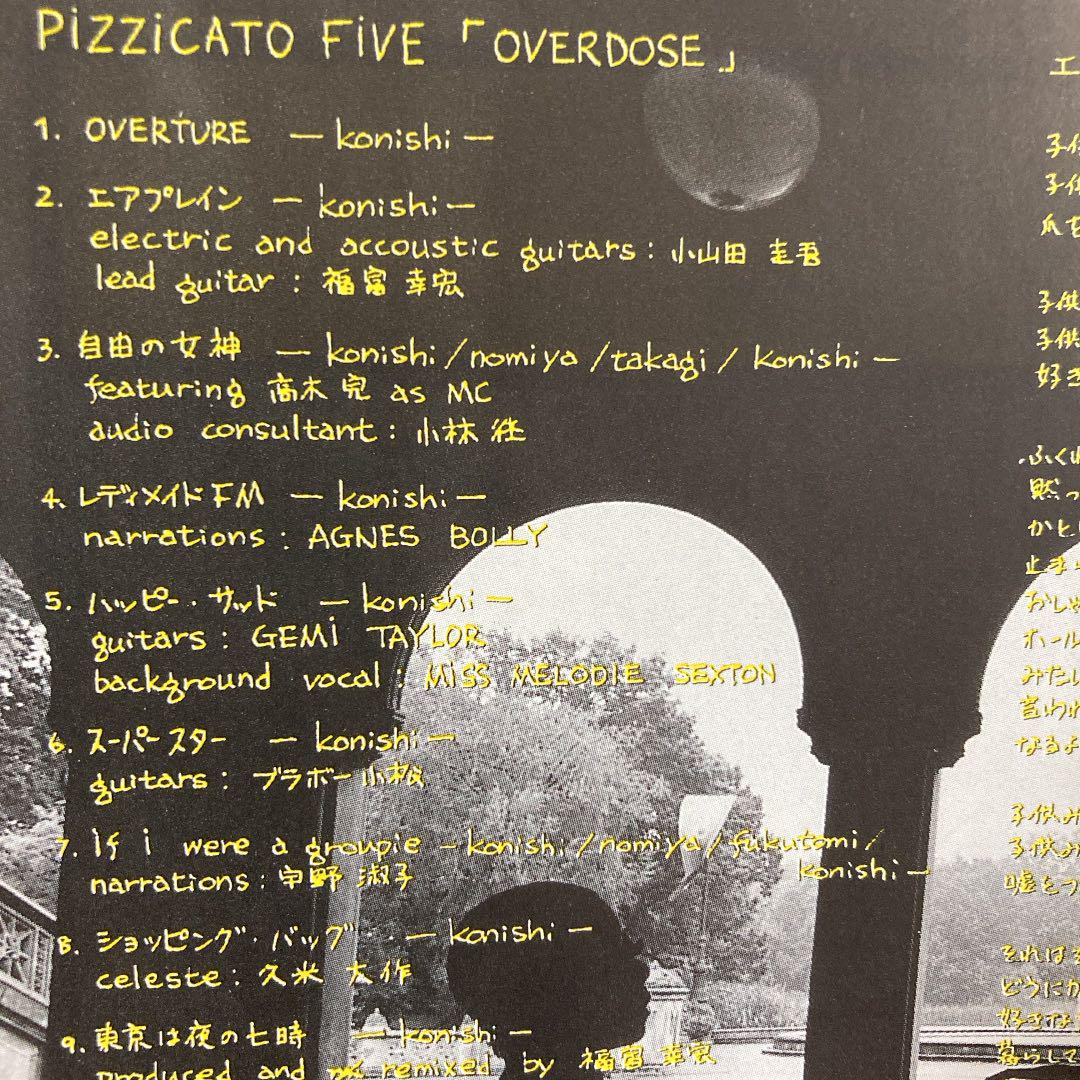 PiZZiCATO FiVE 「OVERDOSE」
1. OVERTURE — konishi —
2. エアプレイン — konishi —
electric and accoustic guitars : 小山田 圭吾
lead guitar : 福富 幸宏
3. 自由の女神 — konishi / nomiya / takagi / konishi —
featuring 高木 完 as MC
audio consultant : 小林 径
4. レディメイドFM — konishi —
narrations : AGNES BOLLY
5. ハッピー・サッド — konishi —
guitars : GEMi TAYLOR
background vocal : MiSS MELODIE SEXTON
6. スーパースター — konishi —
guitars : ブラボー小松
7. if i were a groupie — konishi / nomiya / fukutomi /
konishi —
narrations : 宇野 淑子
8. ショッピング・バッグ — konishi —
celeste : 久米 大作
9. 東京は夜の七時 — konishi —
produced and remixed by 福富 幸宏
エ
子供
子供
爪を
子供
子供
好き
ふくれ
黙っ
かと
止まら
おしゃ
ホール
みたい
言われ
なるよ
子供み
子供み
嘘をつ
それは
どうにか
好きな
暮らして